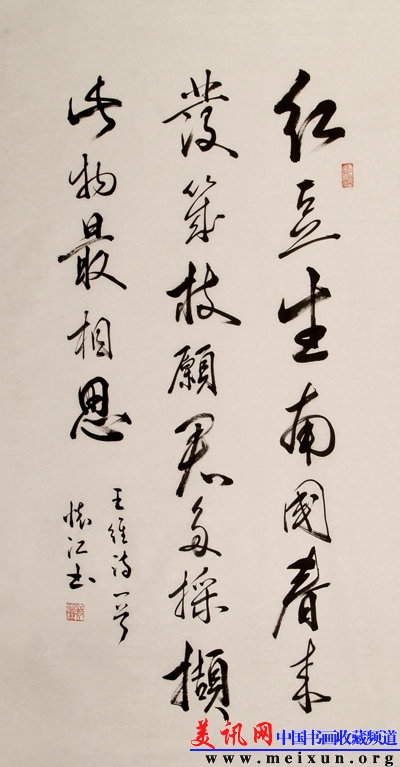 红豆生南國春来
發幾枝願君多採擷
此物最相思
王维诗一首
怀江书
美讯网 中国书画收藏频道
www.meixun.org